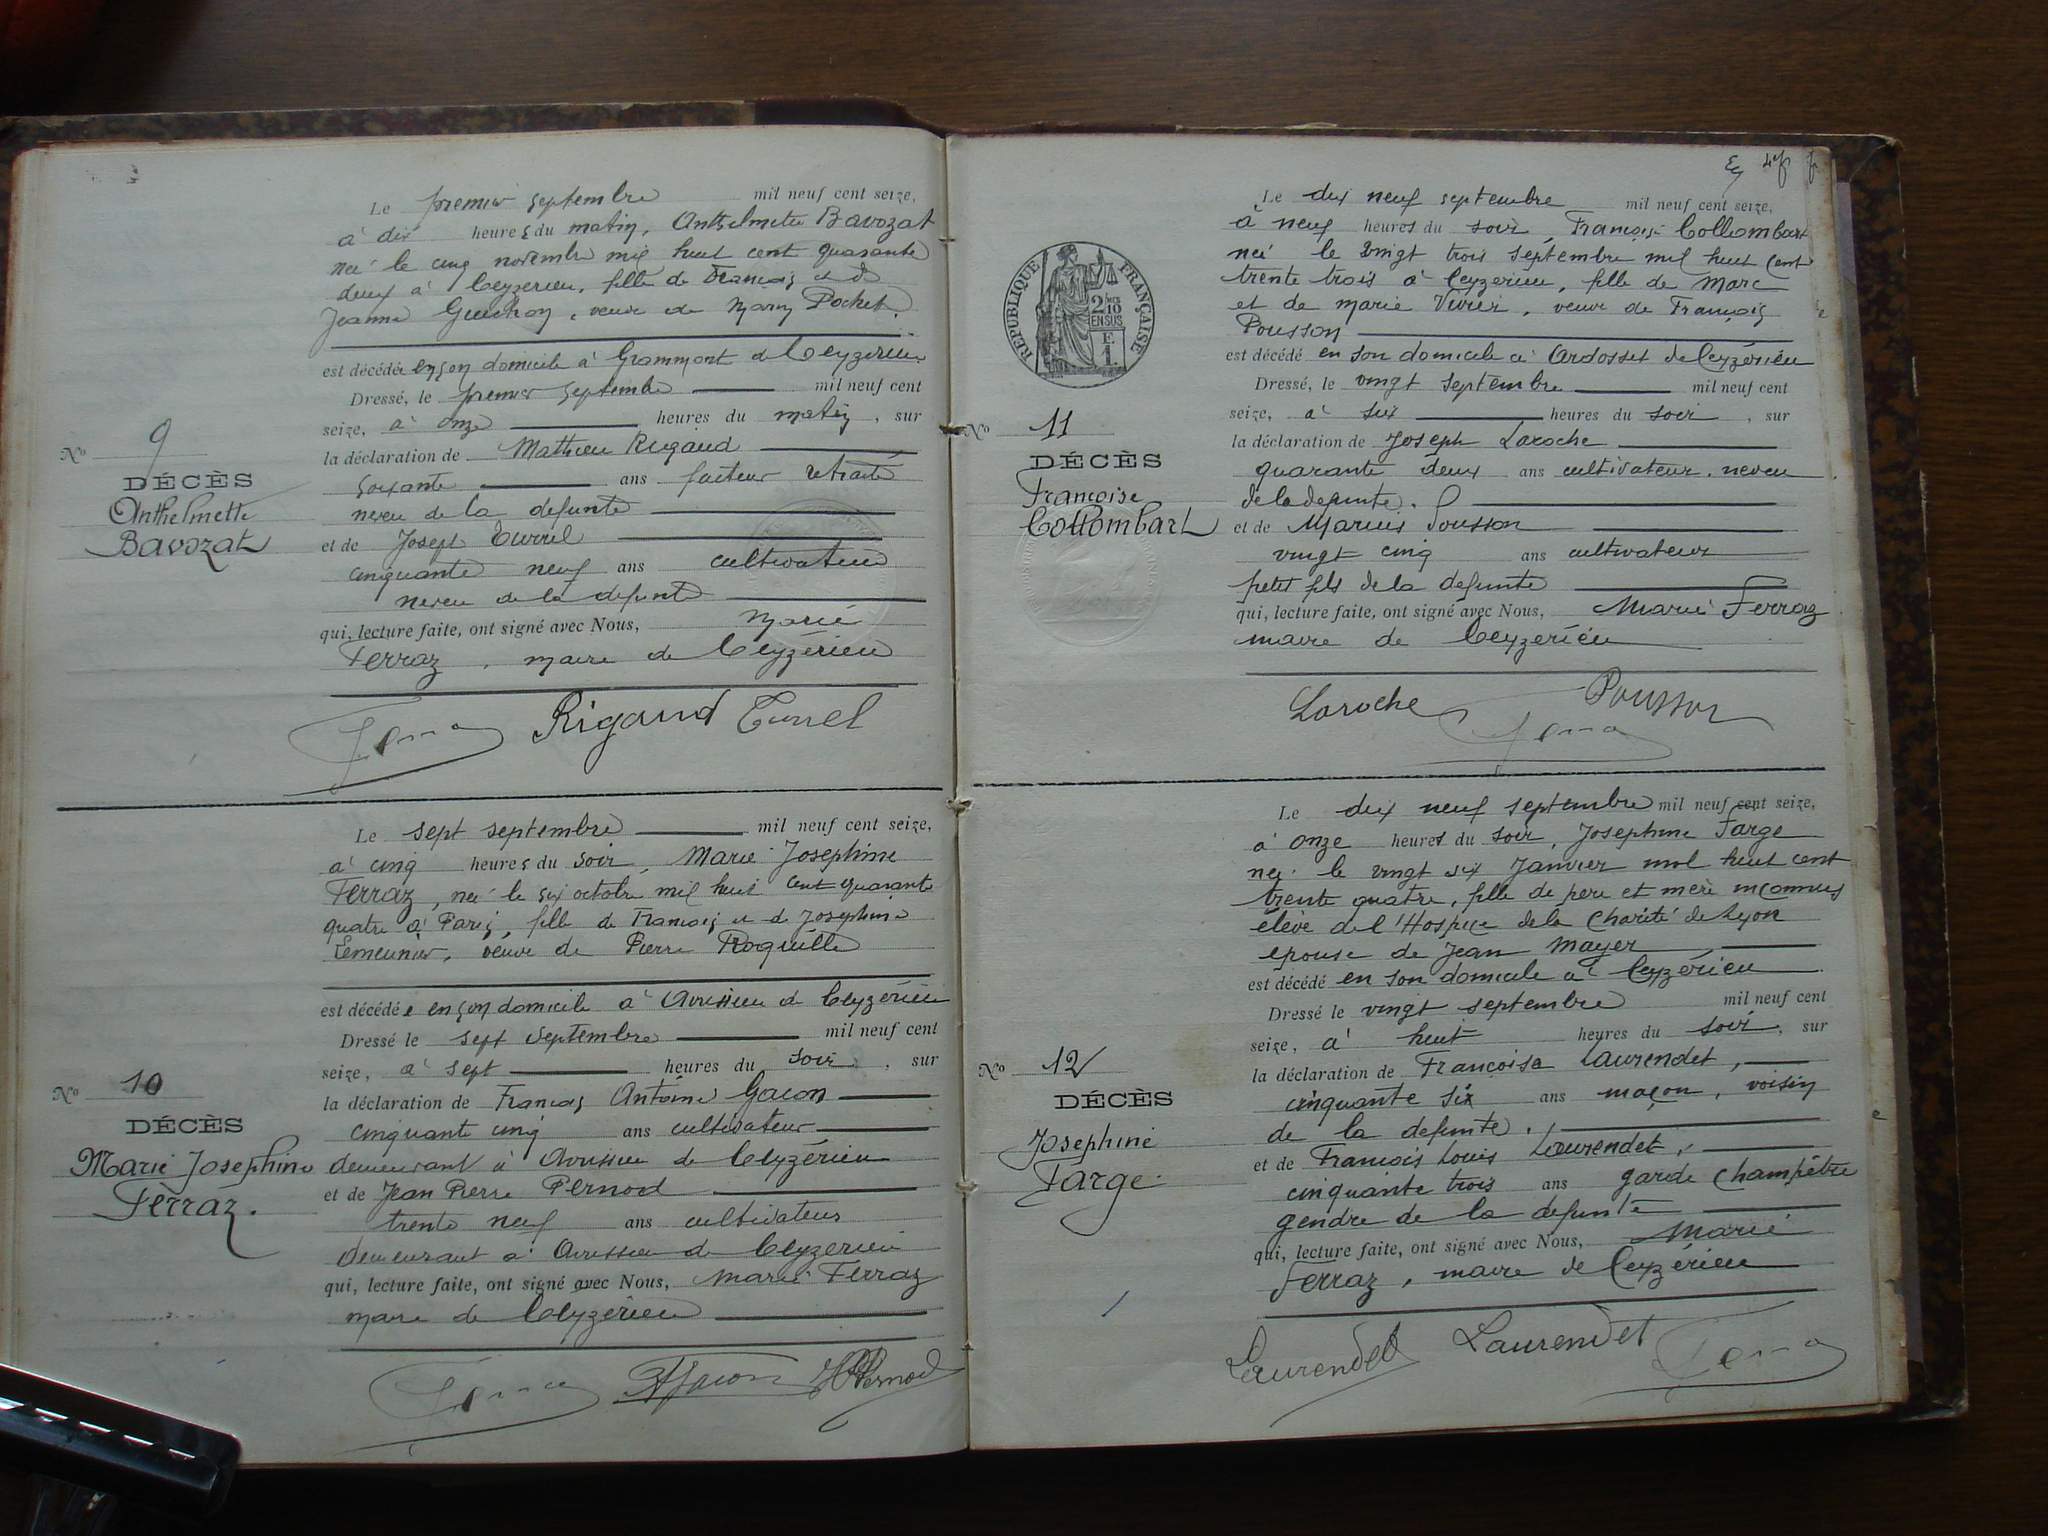 Le premier septembre mil neuf cent seize,
à dix heures du matin, Anthelmette Bavozat
née le cinq novembre mil huit cent quarante
deux à Ceyzerieu, fille de François et de
Jeanne Guichon, veuve de Marin Pochet.
est décédée en son domicile à Grammont de Ceyzérieu
Dressé, le premier septembre mil neuf cent
seize, à onze heures du matin, sur
la déclaration de Mathieu Rigaud
soixante ans facteur retraité
neveu de la defunte
et de Joseph
cinquante neuf ans cultivateur
neveu de la defunte
qui, lecture faite, ont signé avec Nous, Marie
Ferraz, maire de Ceyzérieu
Rigaud
No 9
DÉCÈS
Anthelmette
Bavozat
Le sept septembre mil neuf cent seize,
à cinq heures du soir, Marie Josephine
Ferraz, née le six octobre mil huit cent quarante
quatre à Paris, fille de François et de Josephine
Lemeunier, veuve de Pierre Roquille
est décédée en son domicile à Avrissieu de Ceyzérieu
Dressé le sept septembre mil neuf cent
seize, à sept heures du soir, sur
la déclaration de François Antoine Gacon
cinquante cinq ans cultivateur
demeurant à Avrissieu de Ceyzérieu
et de Jean Pierre Pernod
trente neuf ans cultivateur
demeurant à Avrissieu de Ceyzerieu
qui, lecture faite, ont signé avec Nous, Marie Ferraz
maire de Ceyzérieu
Gacon Pernod
No 10
DÉCÈS
Marie Josephine
Ferraz.
RÉPUBLIQUE FRANÇAISE
2/10
EN SUS
F.
1
Le dix neuf septembre mil neuf cent seize,
à neuf heures du soir, Françoise Collombart
née le vingt trois septembre mil huit cent
trente trois à Ceyzerieu, fille de Marc
et de Marie Vivier, veuve de François
Pousson
est décédé en son domicile à Ardosset de Ceyzérieu
Dressé, le vingt septembre mil neuf cent
seize, à six heures du soir, sur
la déclaration de Joseph Laroche
quarante deux ans cultivateur, neveu
de la defunte.
et de Marius Pousson
vingt cinq ans cultivateur
petit fils de la defunte
qui, lecture faite, ont signé avec Nous, Marie Ferraz
maire de Ceyzerieu
Laroche Pousson
No 11
DÉCÈS
Françoise
Collombart
Le dix neuf septembre mil neuf cent seize,
à onze heures du soir, Josephine Farge
née le vingt six Janvier mil huit cent
trente quatre, fille de père et mère inconnus
élève de l'Hospice de la Charité de Lyon
epouse de Jean Mayer
est décédé en son domicile à Ceyzérieu
Dressé le vingt septembre mil neuf cent
seize, à huit heures du soir, sur
la déclaration de Françoise Laurendet,
cinquante six ans maçon, voisin
de la defunte.
et de François Louis Laurendet,
cinquante trois ans garde champêtre
gendre de la defunte
qui, lecture faite, ont signé avec Nous, Marie
Ferraz, maire de Ceyzérieu
Laurendet Laurendet
No 12
DÉCÈS
Josephine
Farge